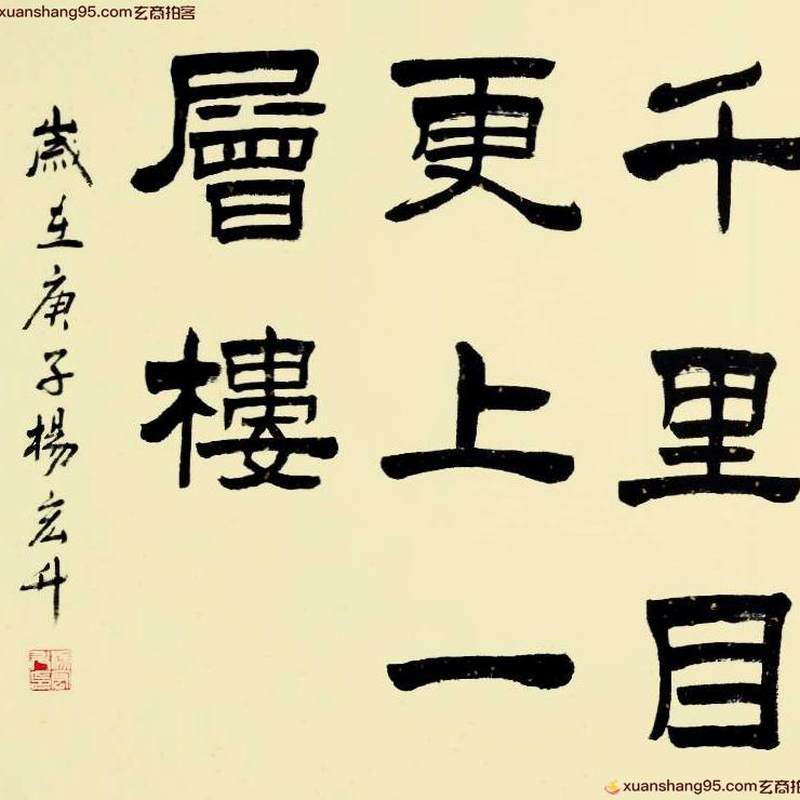 xuanshang95.com玄商拍客
千里目
更上一
層樓
歲在庚子楊宏升
xuanshang95.com玄商拍客